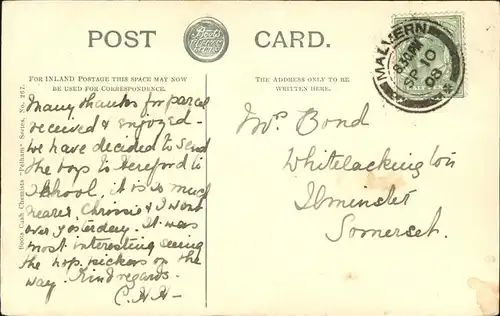 POST CARD.
Boots Cash Chemists
FOR INLAND POSTAGE THIS SPACE MAY NOW
BE USED FOR CORRESPONDENCE.
THE ADDRESS ONLY TO BE
WRITTEN HERE.
MALVERN
8.30 PM
SP 10
08
Boots Cash Chemists "Pelham" Series, No. 267.
Many thanks for parcel
received & enjoyed -
we have decided to send
the boys to Hereford to
School. it is so much
nearer, Chrissie & I went
over yesterday. It was
most interesting seeing
the hop pickers on the
way. Kind regards.
C.H.H-
Mrs Bond
Whitelackington
Ilminster
Somerset.